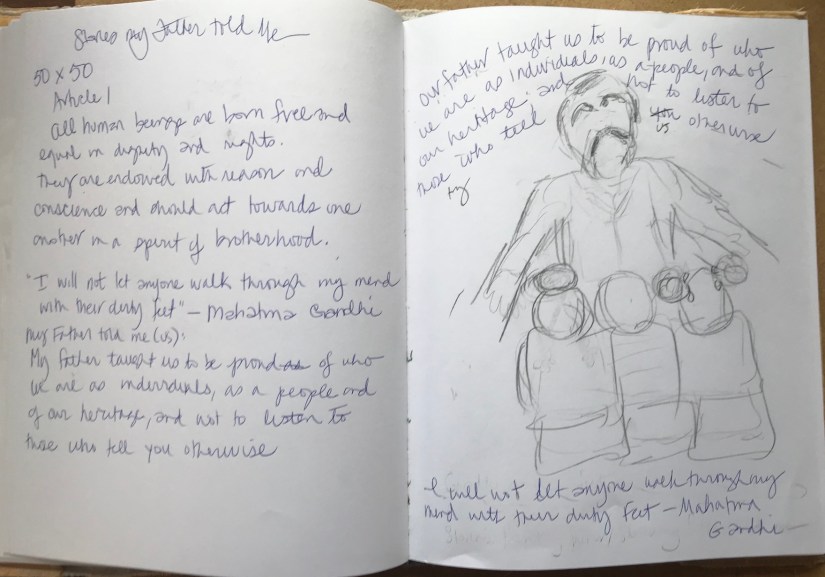 Stories my Father told Me
50 x 50
Article 1
All human beings are born free and
equal in dignity and rights.
They are endowed with reason and
conscience and should act towards one
another in a spirit of brotherhood.
"I will not let anyone walk through my mind
with their dirty feet" – Mahatma Gandhi
My Father told me (us):
My father taught us to be proud as of who
we are as individuals, as a people and
of our heritage, and not to listen to
those who tell you otherwise
our father taught us to be proud of who
we are as individuals, as a people, and of
our heritage. and not to listen to
those who tell you otherwise
us
try
I will not let anyone walk through my
mind with their dirty feet – Mahatma
Gandhi